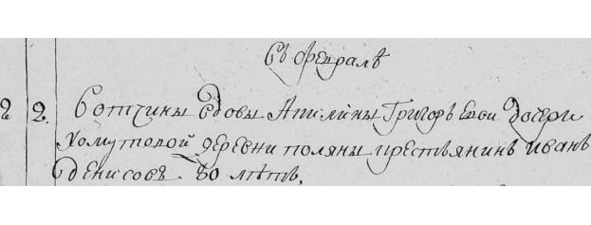 въ февралѣ
2 2. вотчины вдовы Акилины Григорьевой дочери
Хомутовой деревни поляны крестьянинъ иванъ
денисовъ 80 лѣтъ.